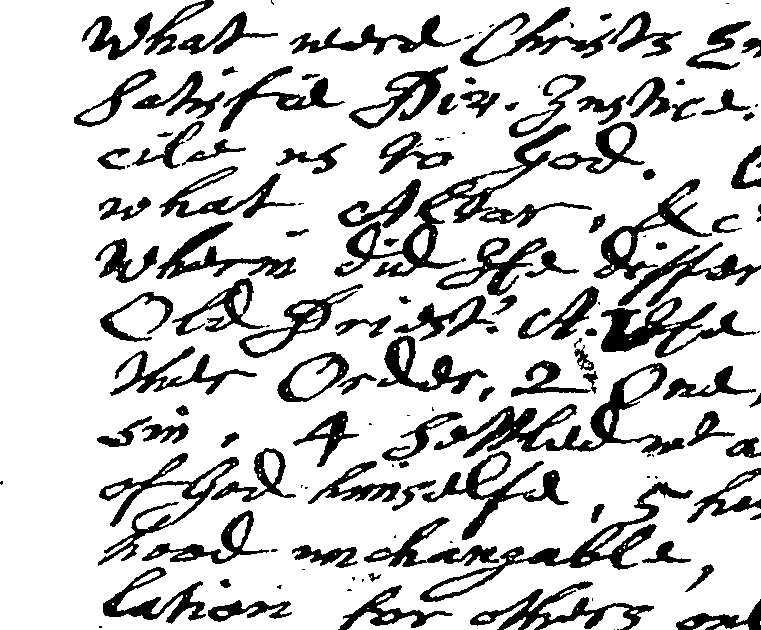 What were Christs En
Satisfie Div. Justice.
cile us to God.
what Altar, &c
Wherin did Hee differ
Old Priests. A.
ther Order, 2 One,
sin, 4 Settled not a
of God himselfe, 5 his
hood unchangable,
lation for others onl